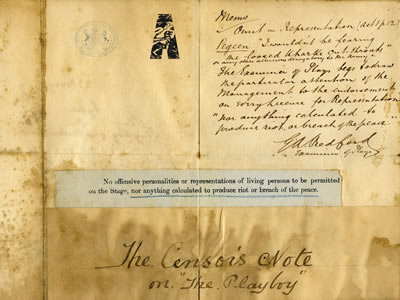 Memo
Omit in Representation (Act I p. 12)
Pegeen "I wouldn't be fearing
the loosed kharki cut-throats"
or any other allusions derogatory to the Army
The Examiner of Plays begs to draw
the particular attention of the
Management to the endorsement
on every license for Representation
"nor anything calculated to
produce riot, or breach of the peace"
G A Redford
Examiner of Plays
No offensive personalities or representations of living persons to be permitted
on the Stage, nor anything calculated to produce riot or breach of the peace.
The Censor's Note
on "The Playboy"